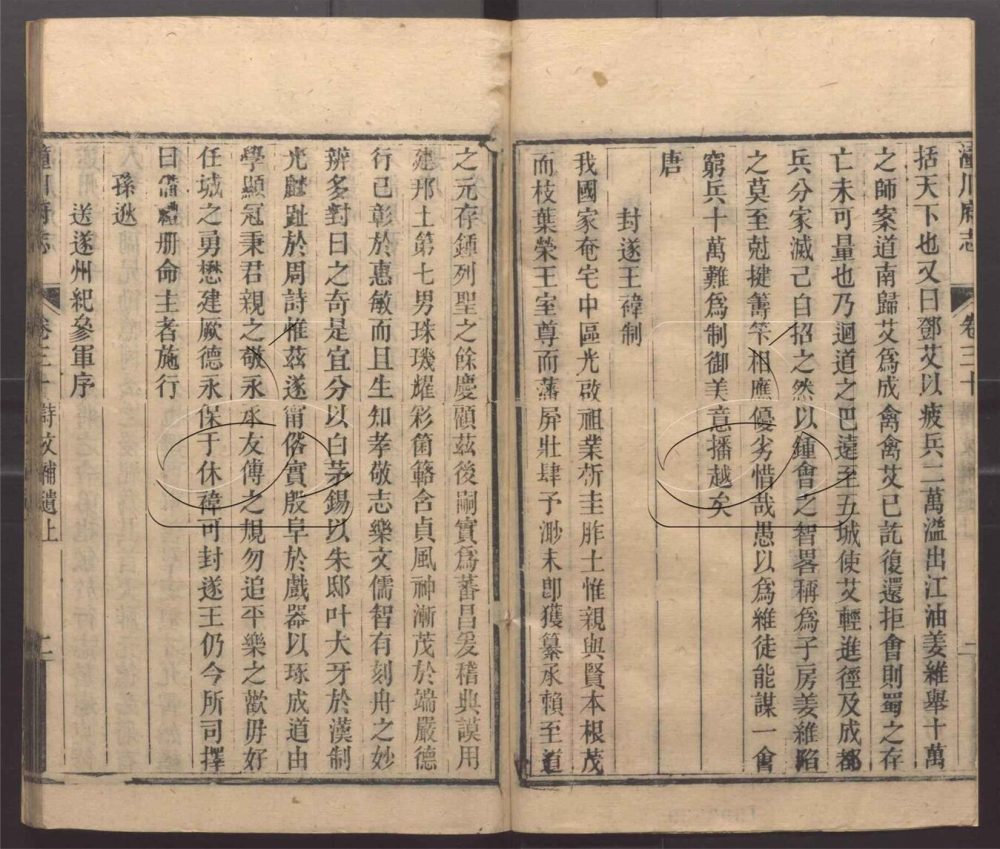 潼川府志
卷三十
二
括天下也又曰鄧艾以疲兵二萬溢出江油姜維舉十萬
之師案道南歸艾爲成禽禽艾已訖復還拒會則蜀之存
亡未可量也乃迴道之巴遠至五城使艾輕進徑及成都
兵分家滅己自招之然以鍾會之智畧稱爲子房姜維陷
之莫至剋揵籌筭相應優劣惜哉愚以爲維徒能謀一會
窮兵十萬難爲制御美意播越矣
唐
封遂王禕制
我國家奄宅中區光啟祖業斫圭胙土惟親與賢本根茂
而枝葉榮王室尊而藩屏壯肆予渺末卽獲纂承賴至道
之元存鍾列聖之餘慶顧茲後嗣實爲蕃昌爰稽典謨用
建邦土第七男珠璣耀彩箘簵含貞風神漸茂於端嚴德
行已彰於惠敏而且生知孝敬志樂文儒智有刻舟之妙
辨多對日之奇是宜分以白茅錫以朱邸叶大牙於漢制
光麟趾於周詩惟茲遂甯俗實殷阜於戲器以琢成道由
學顯冠秉君親之敬永承友傅之規勿追平樂之歡毋好
任城之勇懋建厥德永保于休禕可封遂王仍令所司擇
日備禮册命主者施行
孫逖
送遂州紀參軍序
潼川府志
卷三十
詩文補遺上
二